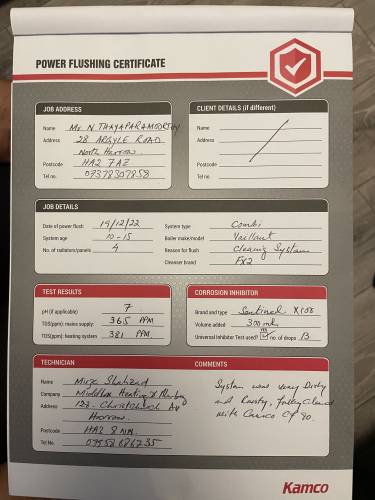 POWER FLUSHING CERTIFICATE
JOB ADDRESS
Name Mr N THAYAPARAMOORTHY
Address 28 ARGYLE ROAD
North Harrow
Postcode HA2 7AZ
Tel no. 07378307858
CLIENT DETAILS (if different)
Name
Address
Postcode
Tel no.
JOB DETAILS
Date of power flush 19/12/22
System age 10-15
No. of radiators/panels 4
System type Combi
Boiler make/model Vaillant
Reason for flush Cleaning System
Cleanser brand FX2
TEST RESULTS
pH (if applicable) 7
TDS(ppm): mains supply: 365 PPM
TDS(ppm): heating system 381 PPM
CORROSION INHIBITOR
Brand and type Sentinel X100
Volume added 300 mls
Universal Inhibitor Test used? YES no. of drops 13
TECHNICIAN
Name Mirza Shahzad
Company Middlesex Heating & Plumbing
Address 123 Christchurch Av
Harrow
Postcode HA3 8NN
Tel No.
COMMENTS
System was very Dirty
and Rusty, Fully Cleaned
with Camco CF90.
Kamco